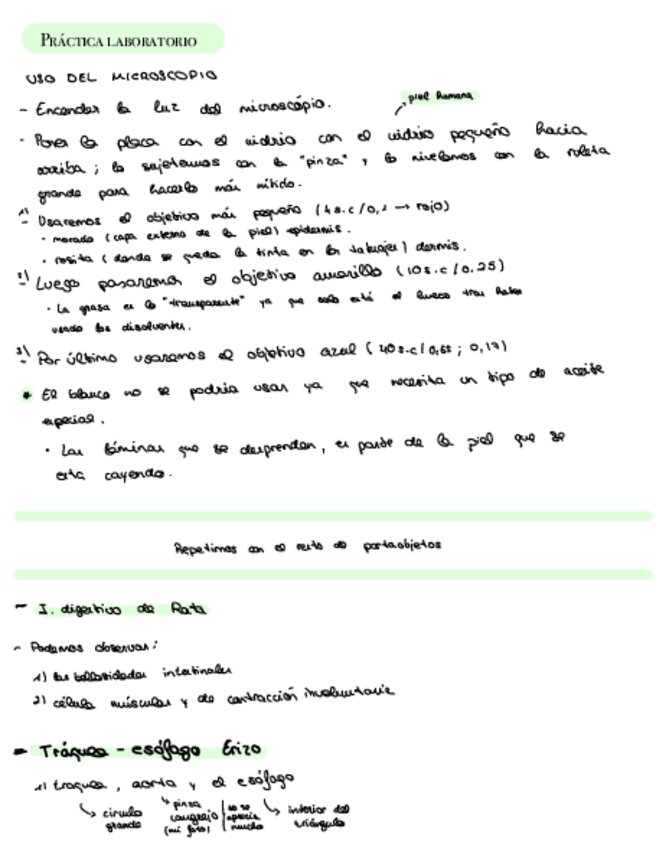 PRÁCTICA LABORATORIO
USO DEL MICROSCOPIO
- Encender la luz del microscópio.
piel humana
- Poner la placa con el vidrio con el vidrio pequeño hacia
arriba ; la sujetamos con la "pinza" y lo nivelamos con la roleta
grande para hacerlo más nítido.
1) Usaremos el objetivo más pequeño (4s.c/0,1 → rojo)
· morado (capa externa de la piel) epidermis.
· rosita (donde se queda la tinta en los tatuajes) dermis.
2) Luego pasaremos el objetivo amarillo (10s.c/0.25)
· La grasa es lo "transparente" ya que solo está el hueco tras haber
usado los disolventes.
3) Por último usaremos el objetivo azul (40s.c/0,65 ; 0,17)
* El blanco no se podría usar ya que necesita un tipo de aceite
especial.
· Las láminas que se desprenden, es parte de la piel que se
está cayendo.
Repetimos con el resto de portaobjetos
- I. digestivo de Rata
- Podemos observar:
1) las bellosidades intestinales
2) célula múscular y de contracción involuntaria
- Tráquea - esófago Erizo
1) traquea, aorta y el esófago
círculo grande
pinza cangrejo (mi foto)
no se aprecia mucho
interior del triángulo